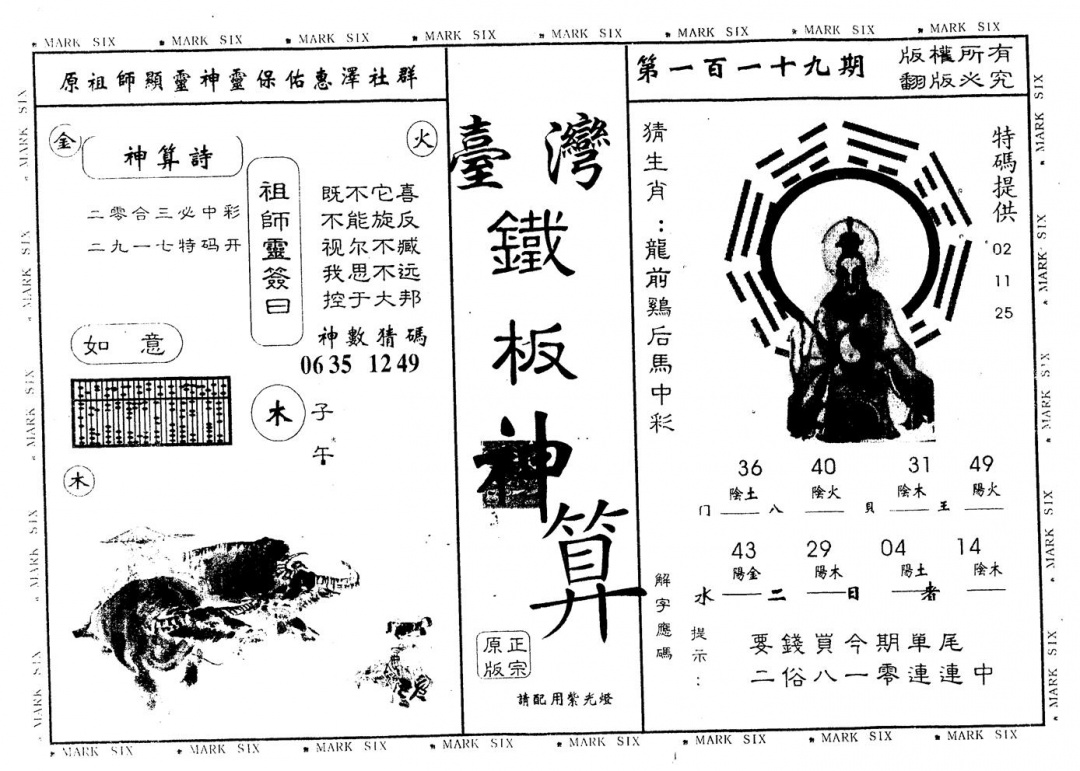 MARK SIX MARK SIX MARK SIX MARK SIX MARK SIX MARK SIX MARK SIX MARK SIX
原祖師顯靈神靈保佑惠澤社群
金
火
神算詩
二零合三必中彩
二九一七特码开
祖師靈簽曰
既不它喜
不能旋反
视尔不臧
我思不远
控于大邦
神數猜碼
06 35 12 49
如意
木
子午
木
臺灣
鐵
板
神
算
正宗
原版
請配用紫光燈
第一百一十九期
版權所有
翻版必究
猜生肖：龍前鷄后馬中彩
特碼提供
02
11
25
36 40 31 49
陰土 陰火 陰木 陽火
门 八 貝 王
43 29 04 14
陽金 陽木 陽土 陰木
水 二 日 者
解字應碼
提示：
要錢買今期單尾
二俗八一零連連中
MARK SIX MARK SIX MARK SIX MARK SIX MARK SIX MARK SIX MARK SIX MARK SIX
MARK SIX MARK SIX MARK SIX MARK SIX MARK SIX
MARK SIX MARK SIX MARK SIX MARK SIX MARK SIX